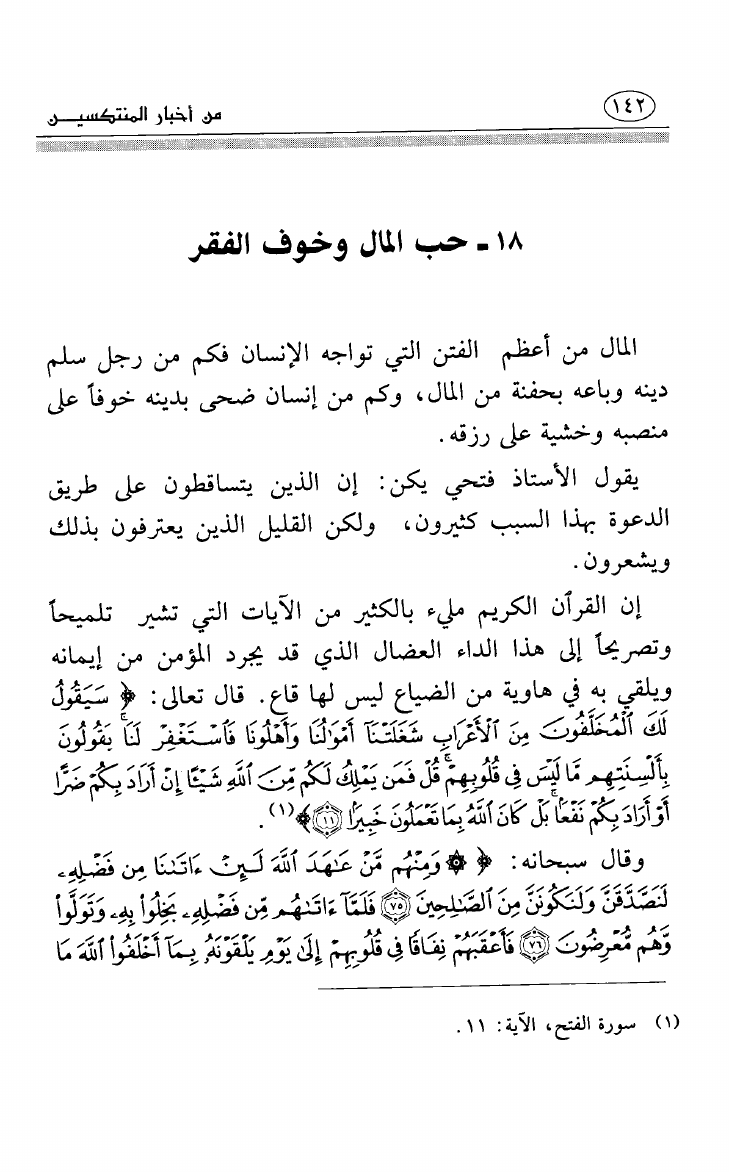 من أخبار المنتكسين
١٤٢
١٨ - حب المال وخوف الفقر
المال من أعظم الفتن التي تواجه الإنسان فكم من رجل سلم
دينه وباعه بحفنة من المال، وكم من إنسان ضحى بدينه خوفاً على
منصبه وخشية على رزقه.
يقول الأستاذ فتحي يكن: إن الذين يتساقطون على طريق
الدعوة بهذا السبب كثيرون، ولكن القليل الذين يعترفون بذلك
ويشعرون.
إن القرآن الكريم مليء بالكثير من الآيات التي تشير تلميحاً
وتصريحاً إلى هذا الداء العضال الذي قد يجرد المؤمن من إيمانه
ويلقي به في هاوية من الضياع ليس لها قاع. قال تعالى: ﴿ سَيَقُولُ
لَكَ ٱلْمُخَلَّفُونَ مِنَ ٱلْأَعْرَابِ شَغَلَتْنَآ أَمْوَٰلُنَا وَأَهْلُونَا فَٱسْتَغْفِرْ لَنَا ۚ يَقُولُونَ
بِأَلْسِنَتِهِم مَّا لَيْسَ فِى قُلُوبِهِمْ ۚ قُلْ فَمَن يَمْلِكُ لَكُم مِّنَ ٱللَّهِ شَيْـًٔا إِنْ أَرَادَ بِكُمْ ضَرًّا
أَوْ أَرَادَ بِكُمْ نَفْعًۢا ۚ بَلْ كَانَ ٱللَّهُ بِمَا تَعْمَلُونَ خَبِيرًۢا ۝١١﴾(١).
وقال سبحانه: ﴿ ۞ وَمِنْهُم مَّنْ عَـٰهَدَ ٱللَّهَ لَئِنْ ءَاتَىٰنَا مِن فَضْلِهِۦ
لَنَصَّدَّقَنَّ وَلَنَكُونَنَّ مِنَ ٱلصَّـٰلِحِينَ ۝٧٥ فَلَمَّآ ءَاتَىٰهُم مِّن فَضْلِهِۦ بَخِلُوا۟ بِهِۦ وَتَوَلَّوا۟
وَّهُم مُّعْرِضُونَ ۝٧٦ فَأَعْقَبَهُمْ نِفَاقًا فِى قُلُوبِهِمْ إِلَىٰ يَوْمِ يَلْقَوْنَهُۥ بِمَآ أَخْلَفُوا۟ ٱللَّهَ مَا
(١) سورة الفتح، الآية: ١١.